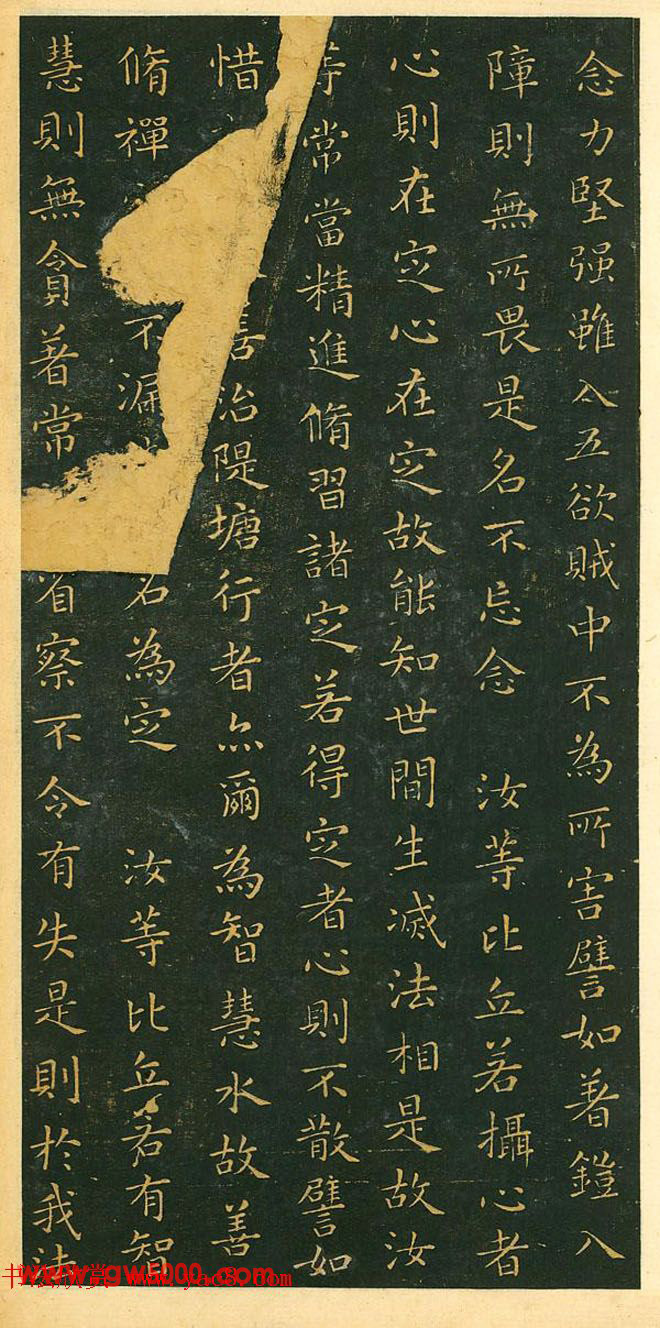 念力堅强雖入五欲賊中不為所害譬如著鎧入
障則無所畏是名不忘念 汝等比丘若攝心者
心則在定心在定故能知世間生滅法相是故汝
等常當精進脩習諸定若得定者心則不散譬如
惜 善治隄塘行者亦爾為智慧水故善
脩禪 不漏 名為定 汝等比丘若有智
慧則無貪著常 省察不令有失是則於我法
www.gw5000.com